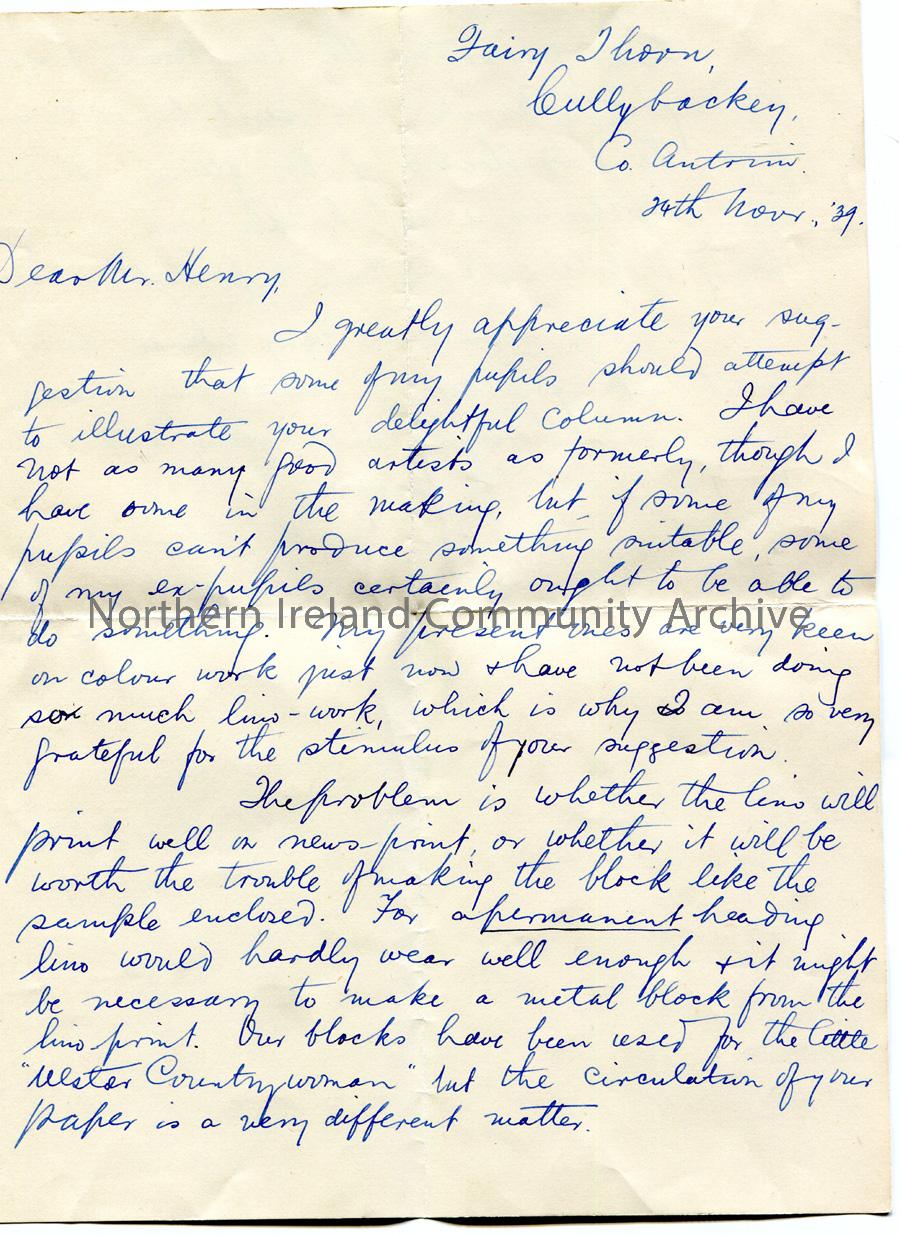 Fairy Thorn,
Cullybackey,
Co. Antrim.
24th Novr., '39.
Dear Mr. Henry,
I greatly appreciate your sug-
gestion that some of my pupils should attempt
to illustrate your delightful column. I have
not as many good artists as formerly, though I
have some in the making, but if some of my
pupils can't produce something suitable, some
of my ex-pupils certainly ought to be able to
Northern Ireland Community Archive
do something. My present ones are very keen
on colour work just now & have not been doing
so much lino-work, which is why I am so very
grateful for the stimulus of your suggestion.
The problem is whether the lino will
print well on news-print, or whether it will be
worth the trouble of making the block like the
sample enclosed. For a permanent heading
lino would hardly wear well enough & it might
be necessary to make a metal block from the
lino print. Our blocks have been used for the little
"Ulster Countrywoman" but the circulation of your
paper is a very different matter.